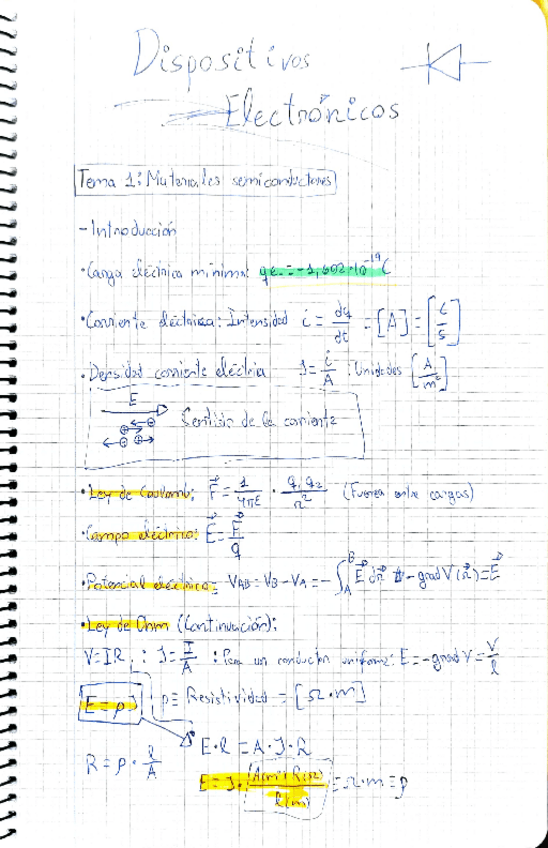 Dispositivos
Electrónicos
Tema 1: Materiales semiconductores
- Introducción
• Carga eléctrica mínima: qe = -1,602·10⁻¹⁹ C
• Corriente eléctrica: Intensidad i = dq/dt = [A] = [C/s]
• Densidad corriente eléctrica J = i/A : Unidades [A/m²]
E
Sentido de la corriente
• Ley de Coulomb: F⃗ = 1/4πε · q₁q₂/r² (Fuerza entre cargas)
• Campo eléctrico: E⃗ = F⃗/q
• Potencial eléctrico = VAB = VB - VA = -∫_A^B E⃗ dr⃗ - grad V(r⃗) = E⃗
• Ley de Ohm (Continuación):
V = IR ; J = I/A ; Para un conductor uniforme: E = -grad V = V/l
E = ρJ ρ ≡ Resistividad = [Ω·m]
E·l = A·J·R
R = ρ · l/A
E = J · (A(m²)·R(Ω)/l(m)) = Ω·m ≡ ρ